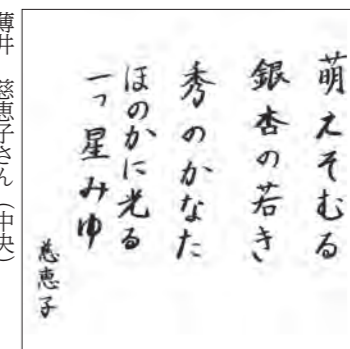 萌えそむる
銀杏の若き
秀のかなた
ほのかに光る
一つ星みゆ
慈恵子
薄井　慈恵子さん（中央）